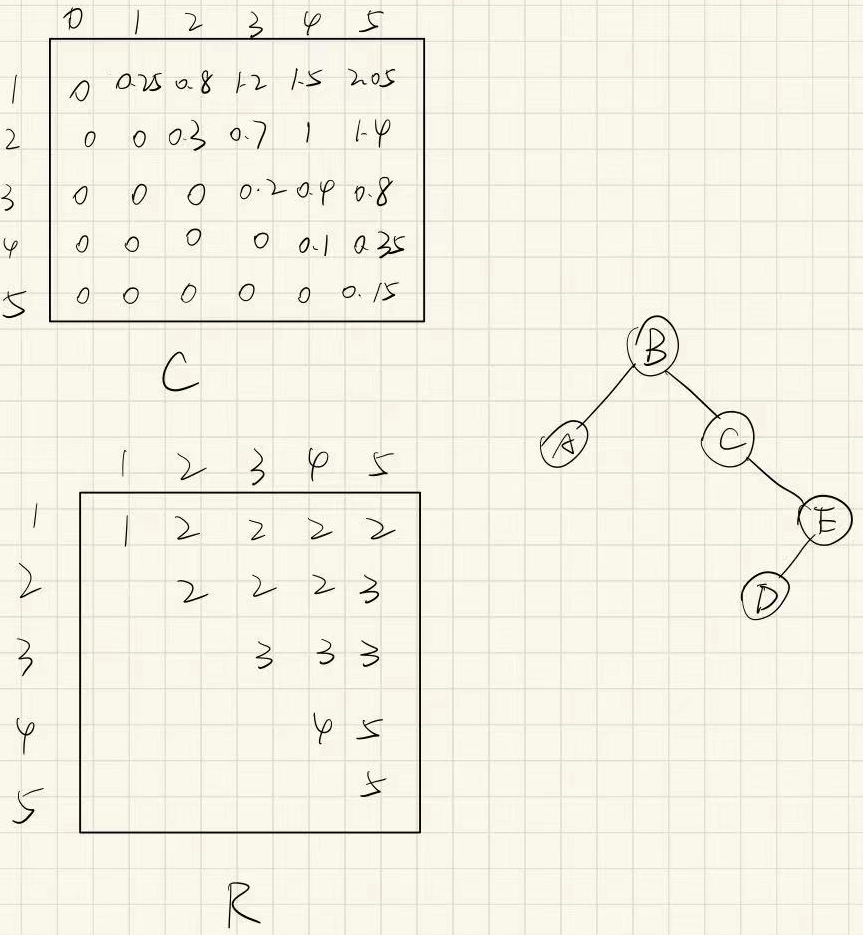 0 1 2 3 4 5
1 0 0.25 0.8 1.2 1.5 2.05
2 0 0 0.3 0.7 1 1.4
3 0 0 0 0.2 0.4 0.8
4 0 0 0 0 0.1 0.35
5 0 0 0 0 0 0.15
C
B
A C
E
D
1 2 3 4 5
1 1 2 2 2 2
2 2 2 2 3
3 3 3 3
4 4 5
5 5
R